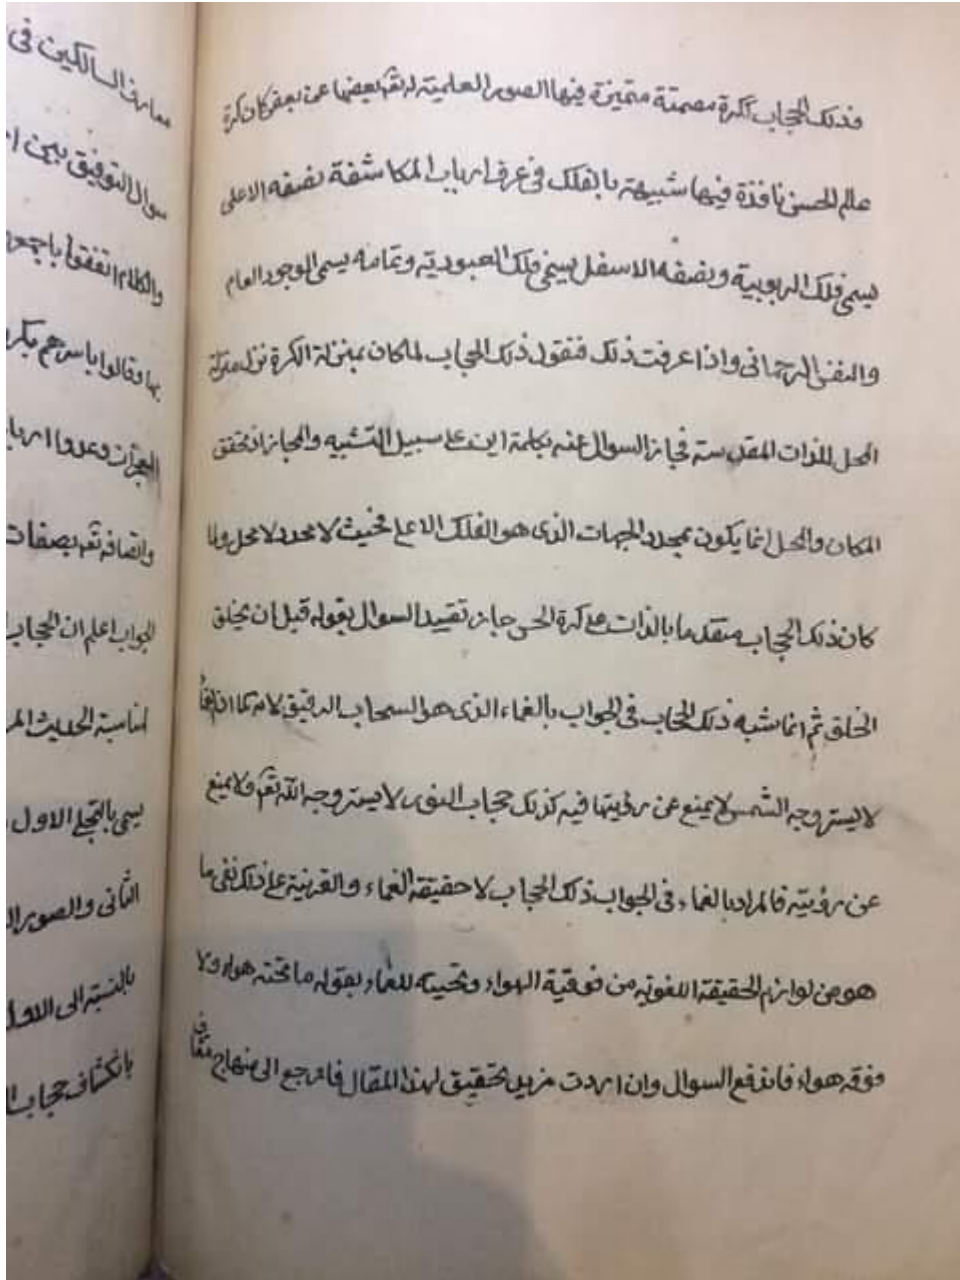 فذلك الحجاب ككرة مصمتة متميزة فيها الصور العلمية له تعم بعضها عن بعض كان كرة
عالم الحسن نافذة فيها شبيهة بالفلك في عرف ارباب المكاشفة نصفه الاعلى
يسمى فلك الربوبية ونصفه الاسفل يسمى فلك العبودية وتمامه يسمى الوجود العام
والنفس الرحماني واذا عرفت ذلك فنقول ذلك الحجاب لما كان بمنزلة الكرة نزل منزلة
المحل للذات المقدسة فجاز السوال عنه بكلمة اين على سبيل التشبيه والمجاز اذ تحقق
المكان والمحل انما يكون بمحدد الجهات الذى هو الفلك الاعلى فحيث لا محدد لا محل ولما
كان ذلك الحجاب متقدما بالذات على كرة الحس جاز تقييد السوال بقوله قبل ان يخلق
الخلق ثم انما شبه ذلك الحجاب فى الجواب بالغماء الذى هو السحاب الرقيق لانه كما ان الغما
لا يستر وجه الشمس لا يمنع عن رؤيتها فيه كذلك حجاب النور لا يستر وجه الله تعم ولا يمنع
عن رؤيته فالمراد بالغماء فى الجواب ذلك الحجاب لا حقيقة الغماء والقرنية على ذلك نفى ما
هو من لوازم الحقيقة اللغوية من فوقية الهواء وتحيته للغماء بقوله ما تحته هواء ولا
فوقه هواء فاندفع السوال وان اردت مزيد تحقيق لهذا المقال فارجع الى منهاج معارف
معارف السالكين فى
سوال التوفيق بين
والكلام اتفقوا
بها وقالوا
وعدوا
واتصافه تعم بصفات
الجواب اعلم ان الحجاب
لمناسبة الحديث
يسمى بالتجلى الاول
الثانى والصور
بالنسبة الى الاول
بانكشاف حجاب